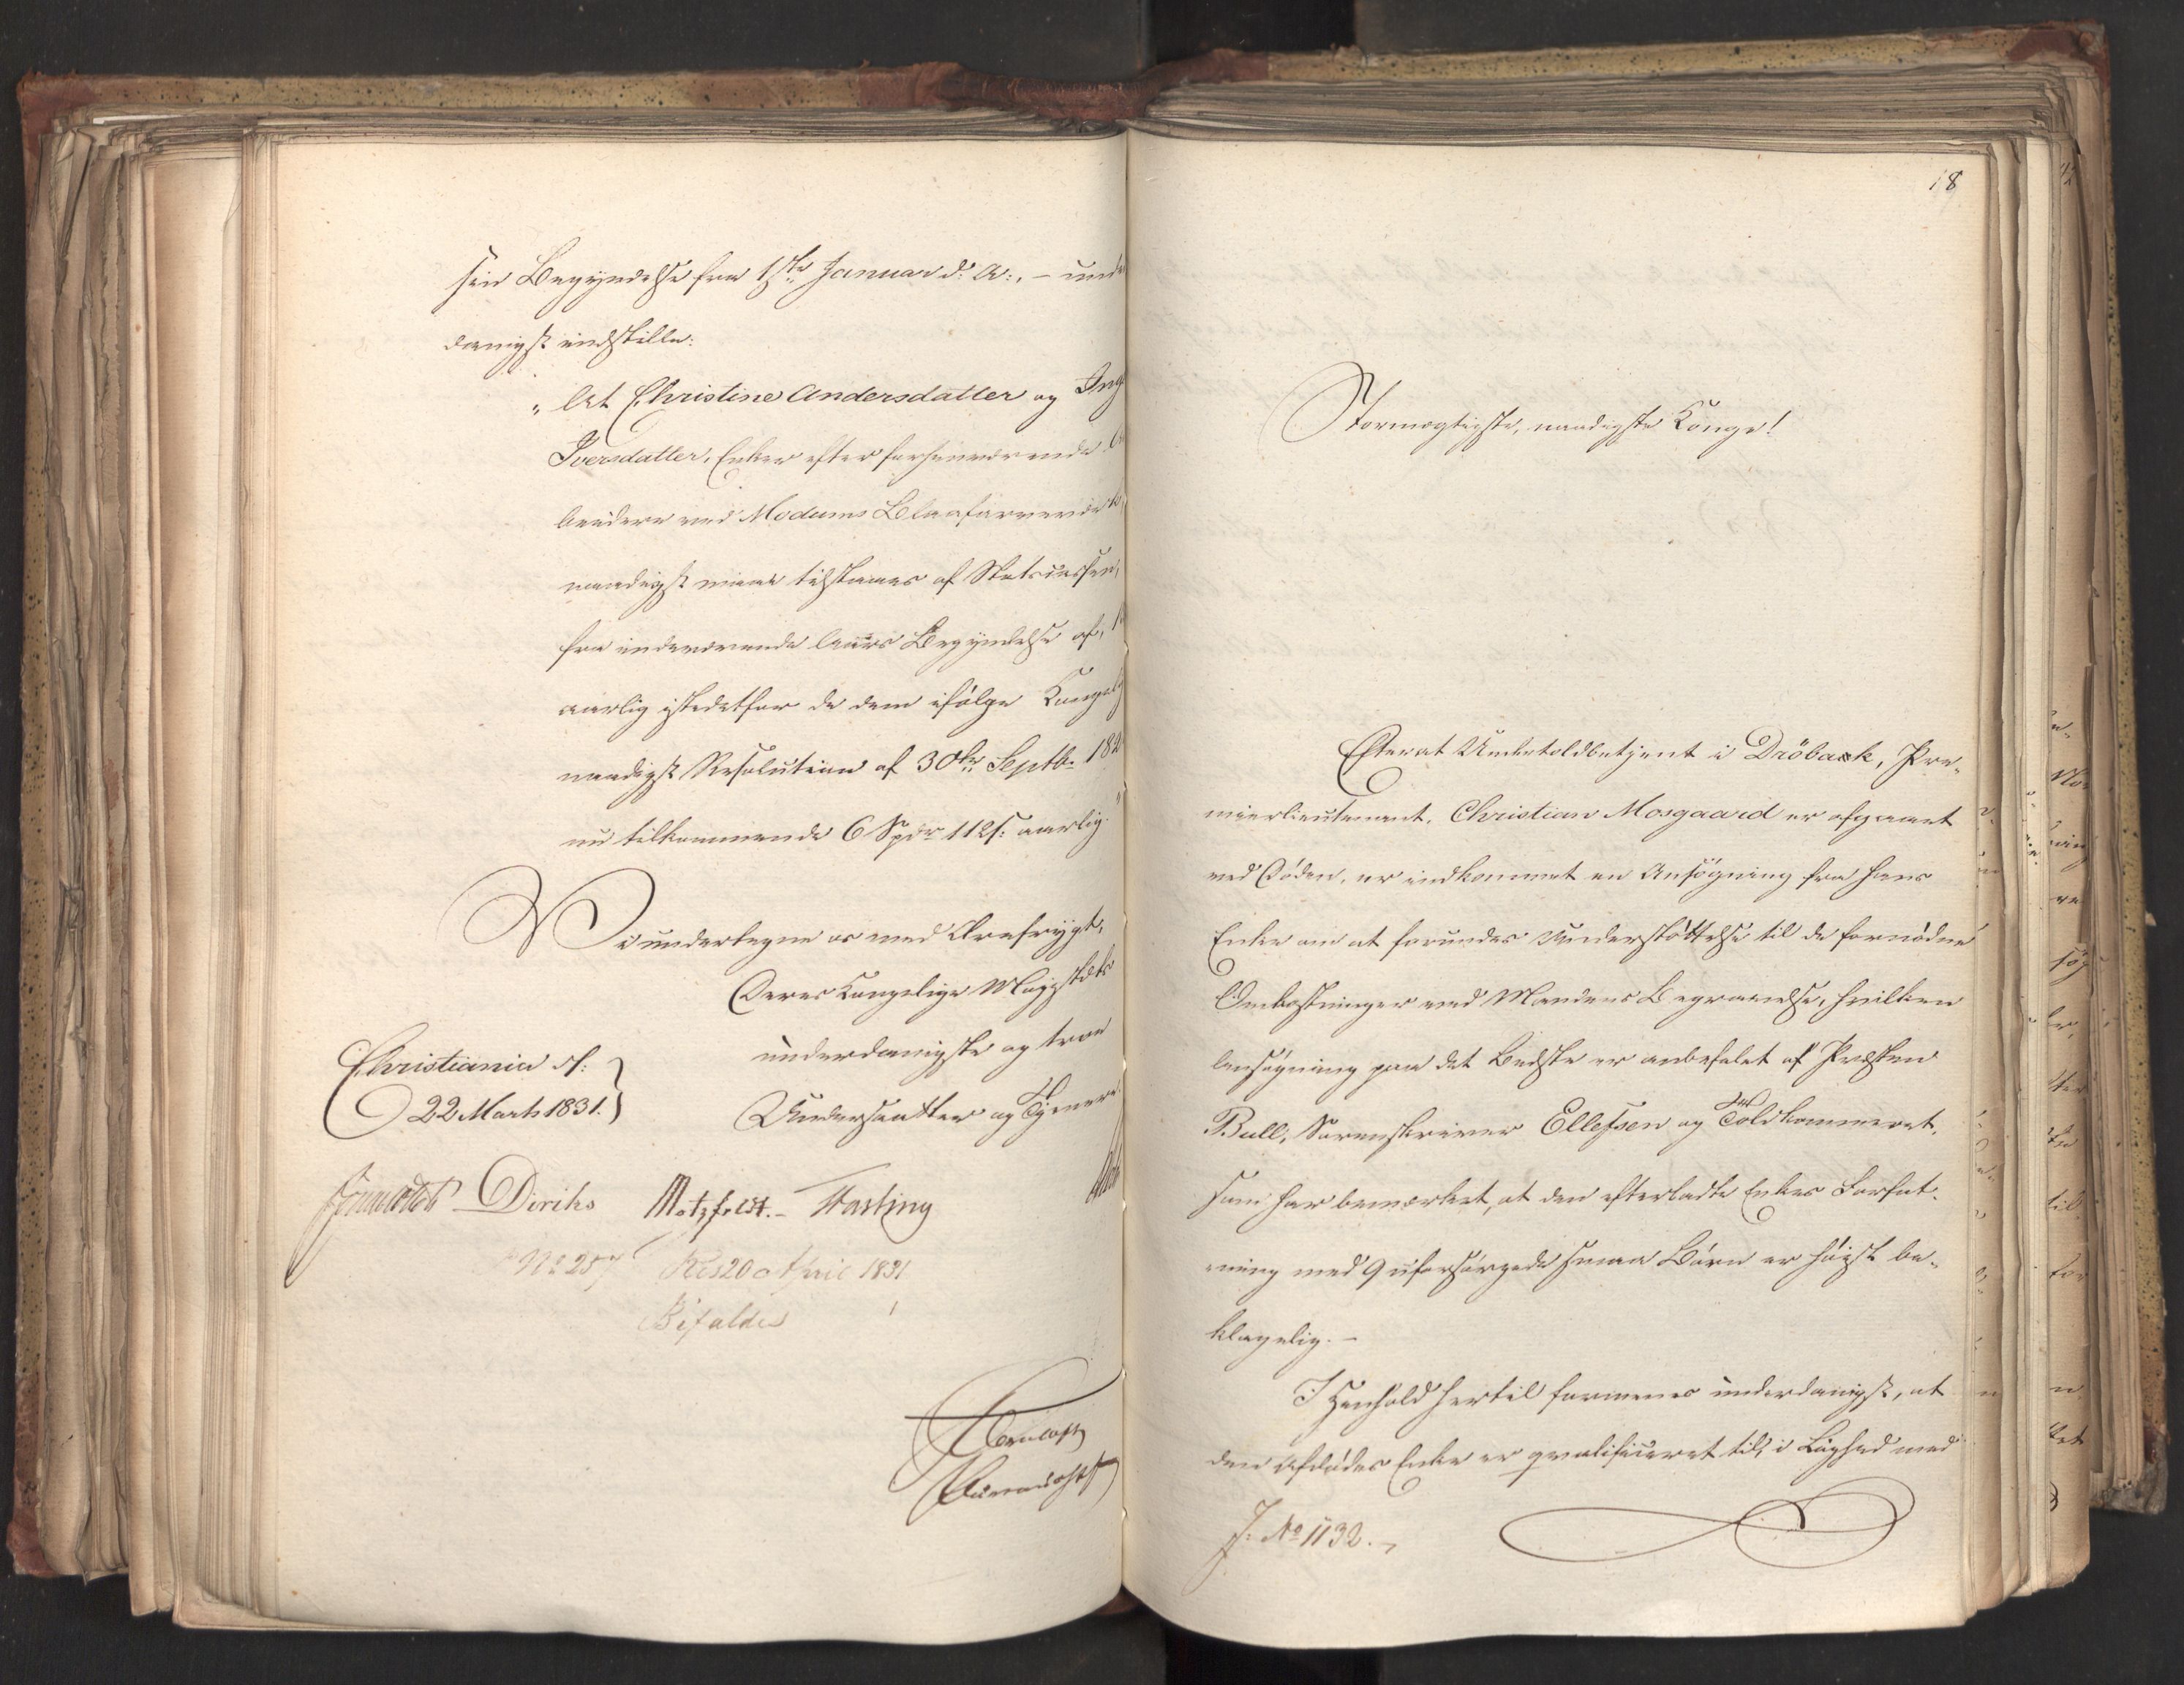 sin Begyndelse fra 1ste Januar d: A:, – und
danigst indstille:
„At Christine Andersdatter og Ing
Iversdatter, Enker efter forhenværende A
beidere ved Modums Blaafarveværk,
naadigst maae tilstaaes af Statscassen,
fra indeværende Aars Begyndelse af,
aarlig istedetfor de dem ifölge Kongelig
naadigst Resolution af 30te Septb. 182
nu tilkommende 6 Spdr 112 s: aarlig."
Vi undertegne os med Ærefrygt,
Deres Kongelige Majestæts
underdanigste og troe
Undersaatter og Tjenere
Christiania d:
22 Marts 1831.
Diriks Motzfeldt. – Fasting
No 257 Res 20 April 1831
Bifaldes
18
Stormægtigste, naadigste Konge!
Efterat Undertoldbetjent i Dröback, Pre-
mierlieutenant, Christian Mosgaard er afgaaet
ved Döden, er indkommet en Ansögning fra hans
Enke om at forundes Understöttelse til de fornödne
Omkostninger ved Mandens Begravelse, hvilken
Ansögning paa det Bedste er anbefalet af Præsten
Bull, Sorenskriver Ellefsen og Toldkammeret,
som har bemærket, at den efterladte Enkes Forfat-
ning med 9 uforsörgede smaa Börn er höist be-
klagelig. –
I Henhold hertil formenes underdanigst, at
den Afdödes Enke er qvalificeret til, i Lighed med
J: No 1132.